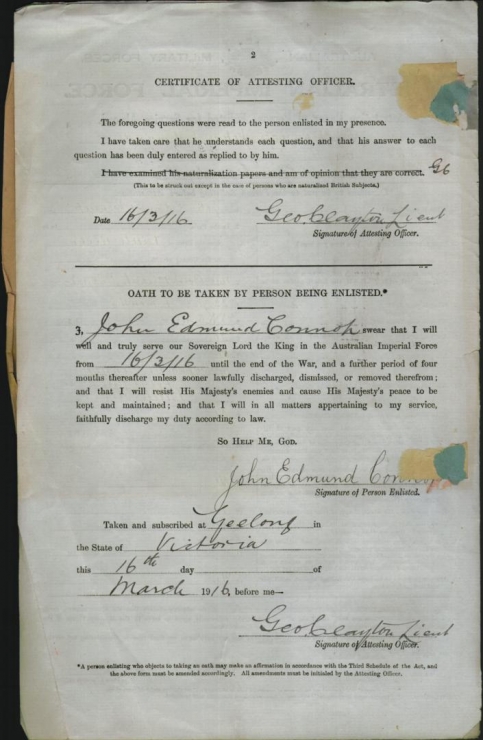 2
CERTIFICATE OF ATTESTING OFFICER.
The foregoing questions were read to the person enlisted in my presence.
I have taken care that he understands each question, and that his answer to each
question has been duly entered as replied to by him.
I have examined his naturalization papers and am of opinion that they are correct. GC
(This to be struck out except in the case of persons who are naturalized British Subjects.)
Date 16/3/16 Geo. Clayton Lieut
Signature of Attesting Officer.
OATH TO BE TAKEN BY PERSON BEING ENLISTED.*
I, John Edmund Connop swear that I will
well and truly serve our Sovereign Lord the King in the Australian Imperial Force
from 16/3/16 until the end of the War, and a further period of four
months thereafter unless sooner lawfully discharged, dismissed, or removed therefrom;
and that I will resist His Majesty's enemies and cause His Majesty's peace to be
kept and maintained; and that I will in all matters appertaining to my service,
faithfully discharge my duty according to law.
SO HELP ME, GOD.
John Edmund
Signature of Person Enlisted.
Taken and subscribed at Geelong in
the State of Victoria
this 16th day of
March 1916, before me—
Geo. Clayton Lieut
Signature of Attesting Officer.
*A person enlisting who objects to taking an oath may make an affirmation in accordance with the Third Schedule of the Act, and
the above form must be amended accordingly. All amendments must be initialed by the Attesting Officer.